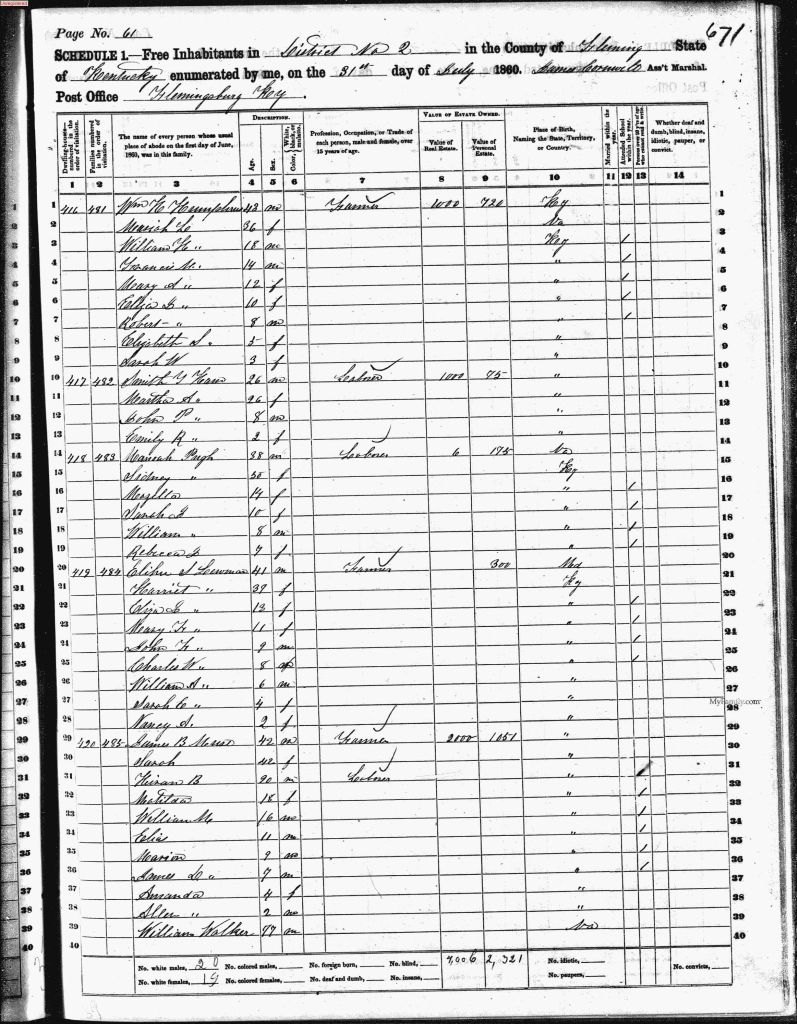 Page No. 61
671
SCHEDULE 1.—Free Inhabitants in District No 2 in the County of Fleming State
of Kentucky enumerated by me, on the 31st day of July 1860. Ass't Marshal.
Post Office Flemingsburg Ky.
Dwelling-houses—numbered in the order of visitation.
Families numbered in the order of visitation.
The name of every person whose usual place of abode on the first day of June, 1860, was in this family.
DESCRIPTION.
Age.
Sex.
Color, White, black, or mulatto.
Profession, Occupation, or Trade of each person, male and female, over 15 years of age.
VALUE OF ESTATE OWNED.
Value of Real Estate.
Value of Personal Estate.
Place of Birth, Naming the State, Territory, or Country.
Married within the year.
Attended School within the year.
Whether deaf and dumb, blind, insane, idiotic, pauper, or convict.
1 2 3 4 5 6 7 8 9 10 11 12 13 14
1 416 481 Wm H Humphries 43 m Farmer 1000 720 Ky 1
2 36 f Va 2
3 William H " 18 m Ky / 3
4 Francis M. 14 m " / 4
5 Mary A " 12 f " / 5
6 10 f " / 6
7 Robert " 8 m " / 7
8 Elizabeth S. 5 f " 8
9 Sarah W 3 f " 9
10 417 482 Smith Y 26 m Laborer 1000 75 " 10
11 Martha A " 26 f " 11
12 John P " 8 m " 12
13 Emily R " 2 f " 13
14 418 483 Pugh 38 m Laborer 6 175 Va 14
15 Sidney " 30 f Ky 15
16 14 f " / 16
17 Sarah 10 f " / 17
18 William " 8 m " / 18
19 Rebecca 7 f " / 19
20 419 484 Elihu S 41 m Farmer 300 Md 20
21 Harriet " 39 f Ky 21
22 Eliza " 13 f " / 22
23 Mary F " 11 f " / 23
24 John F " 9 m " / 24
25 Charles W " 8 m " / 25
26 William A " 6 m " 26
27 Sarah C " 4 f " 27
28 Nancy S. 2 f " 28
29 420 485 James B 42 m Farmer 2000 1051 " 29
30 Sarah 42 f " 30
31 Hiram B 20 m Laborer " / 31
32 Matilda 18 f " / 32
33 William M 16 m " / 33
34 Elias 11 m " / 34
35 Marion 9 m " / 35
36 James 7 m " / 36
37 Amanda 4 f " 37
38 Allen " 2 m " 38
39 William Walker 77 m Va 39
40 40
No. white males, 20 No. colored males, No. foreign born, No. blind, 7,006 2,321 No. idiotic, No. convicts,
No. white females, 19 No. colored females, No. deaf and dumb, No. insane, No. paupers,
MyFamily.com